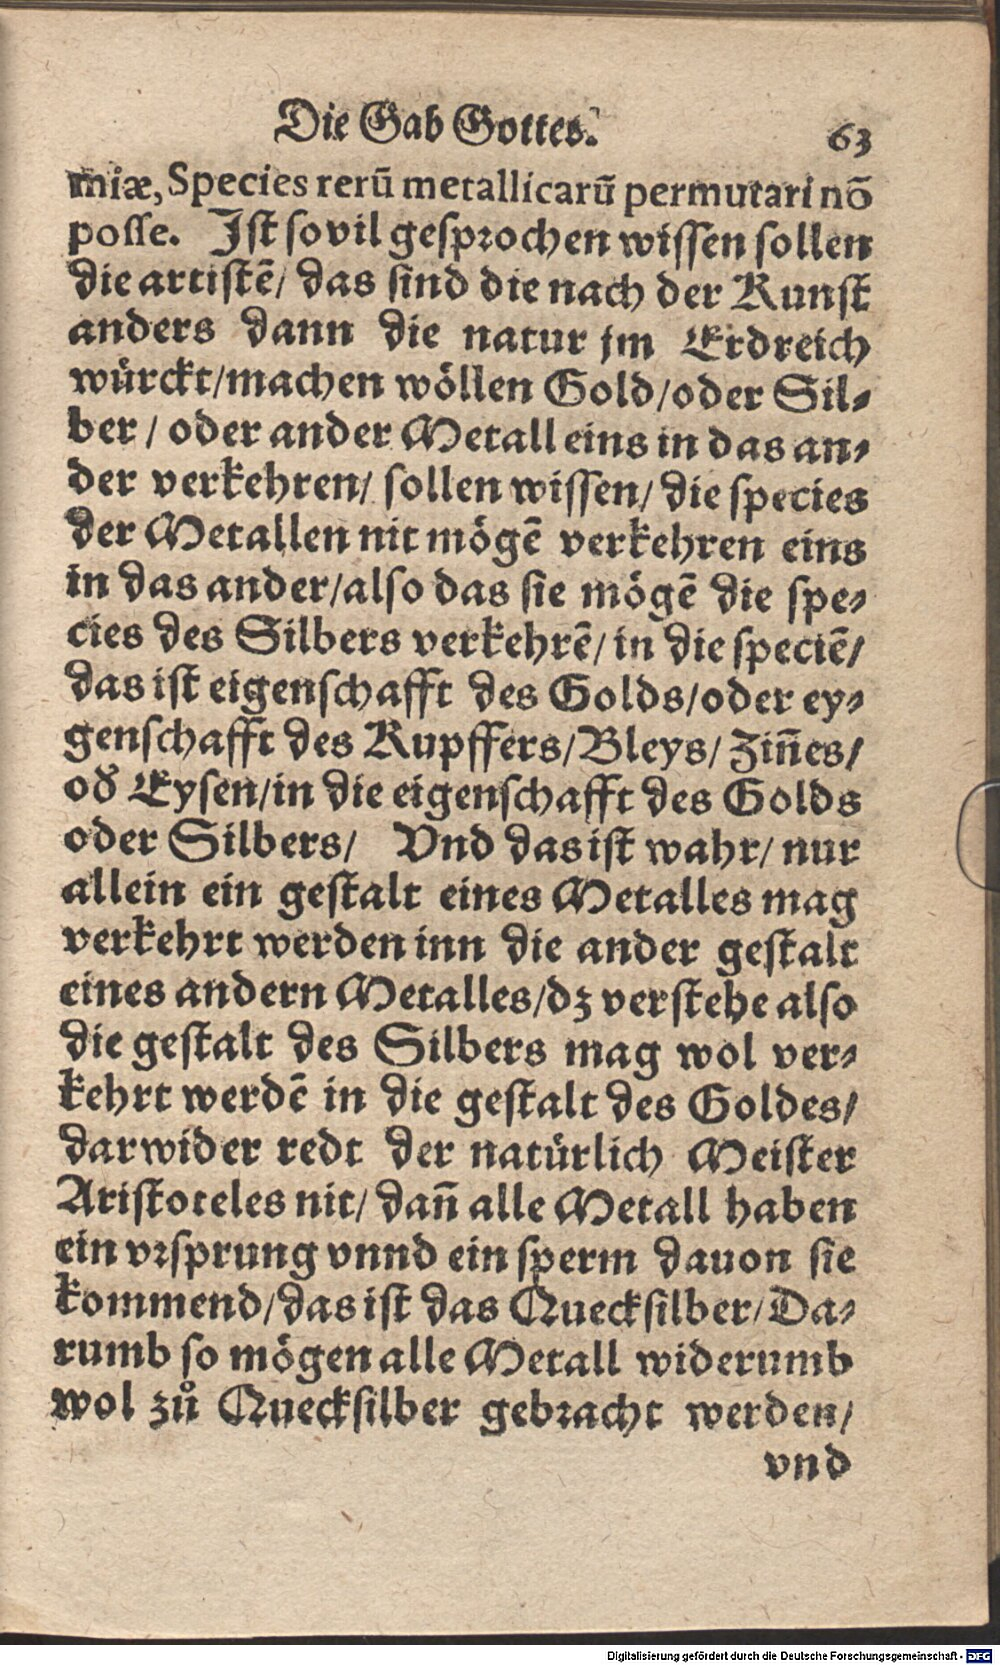 Die Gab Gottes.
63
miæ, Species rerū metallicarū permutari nō
posse. Ist sovil gesprochen wissen sollen
die artistē/ das sind die nach der Kunst
anders dann die natur jm Erdreich
würckt/machen wöllen Gold/oder Sil-
ber / oder ander Metall eins in das an-
der verkehren/ sollen wissen/ die species
der Metallen nit mögē verkehren eins
in das ander/also das sie mögē die spe-
cies des Silbers verkehrē/ in die speciē/
das ist eigenschafft des Golds/oder ey-
genschafft des Kupffers/Bleys/ Zin̄es/
od' Eysen/in die eigenschafft des Golds
oder Silbers/ Vnd das ist wahr/ nur
allein ein gestalt eines Metalles mag
verkehrt werden inn die ander gestalt
eines andern Metalles/dz verstehe also
die gestalt des Silbers mag wol ver-
kehrt werdē in die gestalt des Goldes/
darwider redt der natürlich Meister
Aristoteles nit/ dan̄ alle Metall haben
ein vrsprung vnnd ein sperm dauon sie
kommend/das ist das Quecksilber/Da-
rumb so mögen alle Metall widerumb
wol zů Quecksilber gebracht werden/
vnd
Digitalisierung gefördert durch die Deutsche Forschungsgemeinschaft - DFG